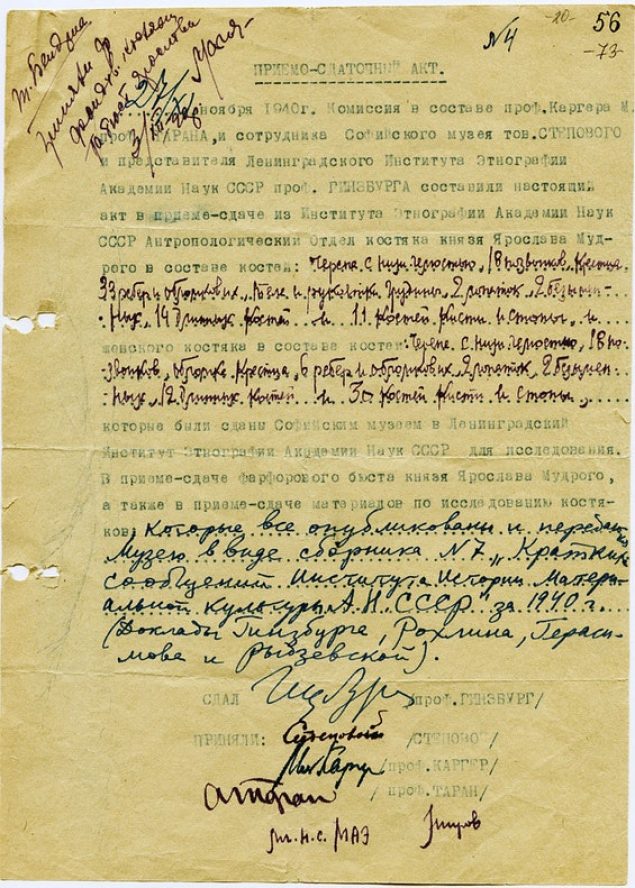 -20-
56
-73-
№4
т. Бендриа
ПРИЕМО-СДАТОЧНЫЙ АКТ.
ноября 1940г. Комиссия в составе проф.Каргера М.
проф. ТАРАНА,и сотрудника Софийского музея тов.СТЕПОВОГО
и представителя Ленинградского Института Этнографии
Академии Наук СССР проф. ГИНЗБУРГА составили настоящий
акт в приеме-сдаче из Института Этнографии Академии Наук
СССР Антропологический Отдел костяка князя Ярослава Муд-
рого в составе костей: Черепа с ниж. челюстью, 18 позвонков, Крестца
33 ребер и обломков их, Тела и рукоятки Грудины, 2 лопаток, 2 безымен-
ных, 14 Длинных Костей и 11 Костей Кисти и стопы, и
женского костяка в составе костей: Черепа с ниж челюстью, 18 по-
звонков, обломка крестца, 6 ребер и обломков их 2 лопаток, 2 безымен-
ных, 12 Длинных Костей и 30 Костей Кисти и стопы,
которые были сданы Софийским музеем в Ленинградский
Институт Этнографии Академии Наук СССР для исследования.
В приеме-сдаче фарфорового бюста князя Ярослава Мудрого,
а также в приеме-сдаче материалов по исследованию костя-
ков: которые все опубликованы и переданы
Музею в виде сборника №7 „Кратких
сообщений Института Истории Матери-
альной культуры А.Н. СССР" за 1940 г.
(Доклады Гинзбурга, Рохлина, Гераси-
мова и Рыдзевской).
СДАЛ /проф.ГИНЗБУРГ/
ПРИНЯЛИ: Степовой /СТЕПОВОЙ/
/проф.КАРГЕР/
/проф.ТАРАН/
мл.н.с. МАЭ